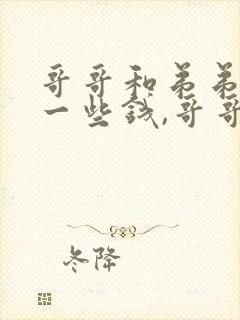 哥哥和弟弟
一些钱,哥哥
冬降